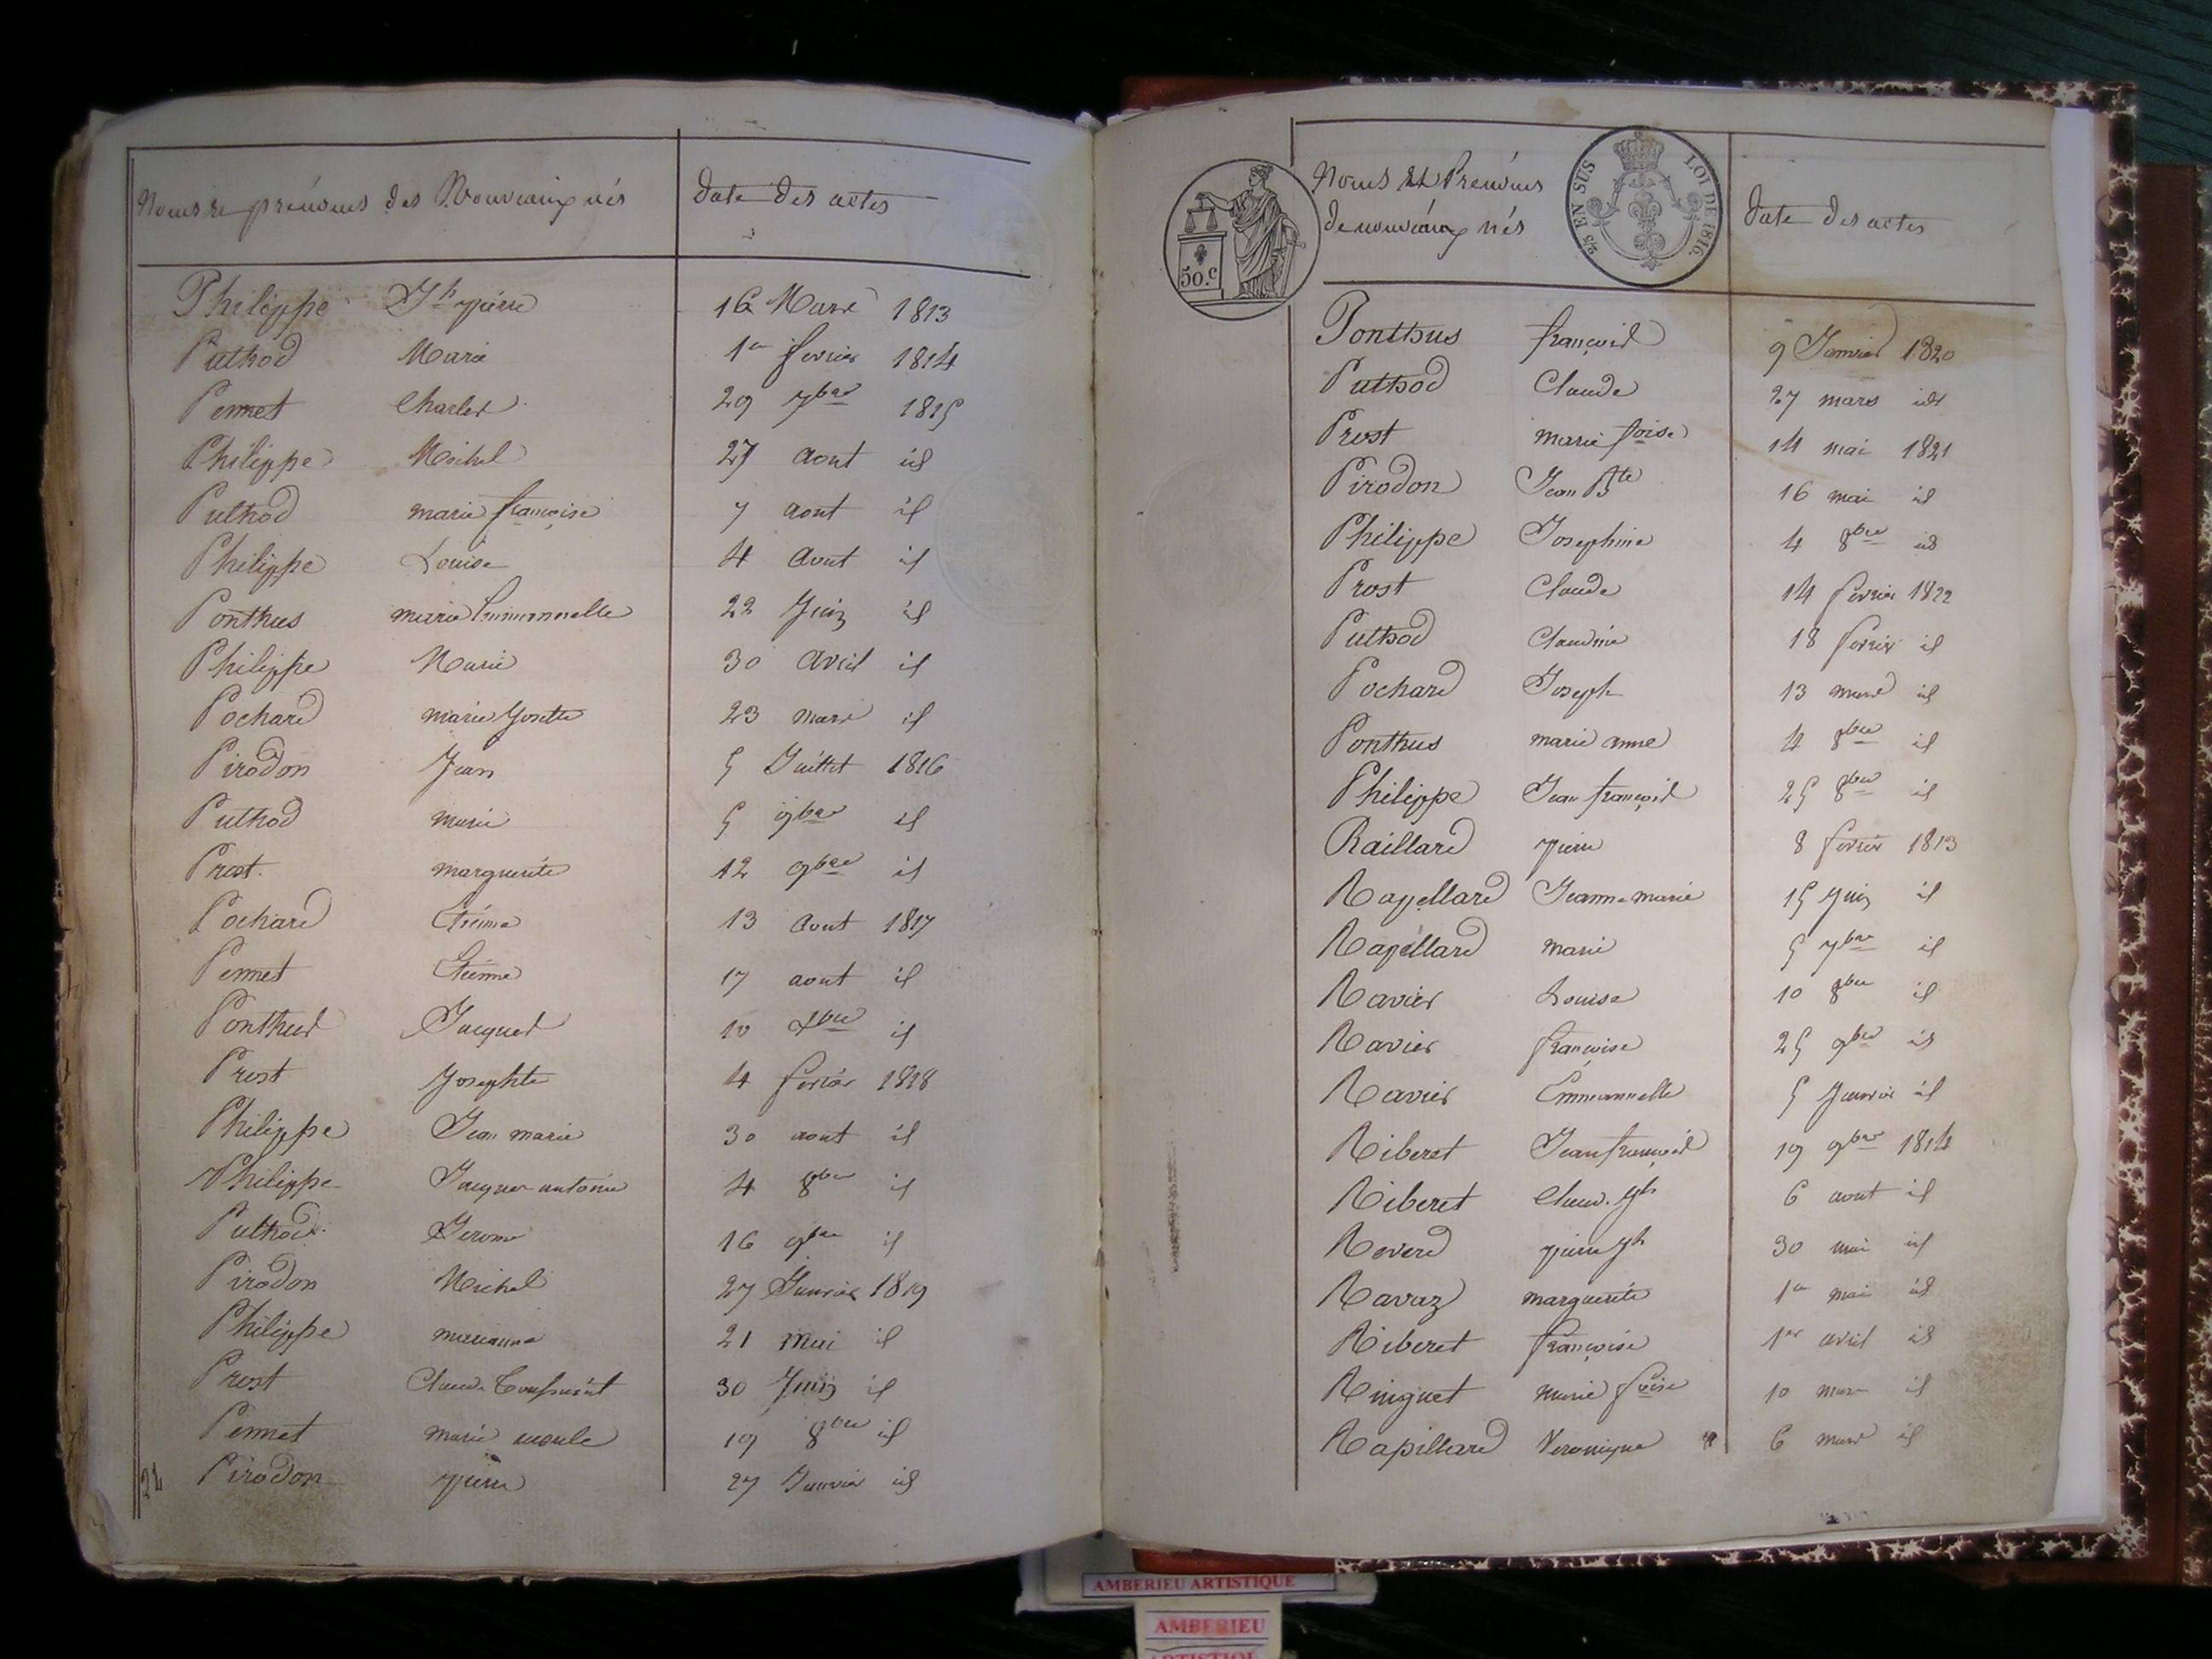 Noms et prénoms des Nouveaux nés date des actes
Philippe Jh pierre 16 Mars 1813
Puthod Marie 1er fevrier 1814
Pennet Charles 29 7bre 1815
Philippe Michel 27 aout id
Puthod marie françoise 7 aout id
Philippe Louise 4 aout id
Ponthus marie Emmannuelle 22 Juin id
Philippe Marie 30 avril id
Pochard marie Josette 23 mars id
Pirodon Jean 5 Juillet 1816
Puthod marie 5 9bre id
Prost marguerite 12 9bre id
Pochard Etienne 13 aout 1817
Pennet Etienne 17 aout id
Ponthus Jacques 10 bre id
Prost Josephte 4 fevrier 1818
Philippe Jean marie 30 aout id
Philippe Jacques antoine 4 8bre id
Puthod Jerome 16 9bre id
Pirodon Michel 27 Janvier 1819
Philippe marianne 21 mai id
Prost Claude Toussaint 30 Juin id
Pennet marie 19 8bre id
Pirodon pierre 27 Janvier id
24
50.c
2/5 EN SUS LOI DE 1816.
Noms et Prénoms
de nouveaux nés date des actes
Ponthus françois 9 Janvier 1820
Puthod Claude 27 mars id
Prost marie foise 14 mai 1821
Pirodon Jean Bte 16 mai id
Philippe Josephine 4 8bre id
Prost Claude 14 fevrier 1822
Puthod Claudine 18 fevrier id
Pochard Joseph 13 mars id
Ponthus marie anne 4 8bre id
Philippe Jean françois 25 8bre id
Raillard pierre 8 fevrier 1813
Rapellard Jeanne marie 15 Juin id
Rapellard marie 5 7bre id
Ravier Louise 10 8bre id
Ravier françoise 25 9bre id
Ravier Emmannuelle 5 Janvier id
Riberet Jean françois 19 9bre 1814
Riberet Claude Jh 6 aout id
Reverd pierre Jh 30 mai id
Ravaz marguerite 1er mai id
Riberet françoise 1er avril id
Ringuet marie foise 10 mars id
Rapillard Veronique 6 mars id
AMBERIEU ARTISTIQUE
AMBERIEU
ARTISTIQUE